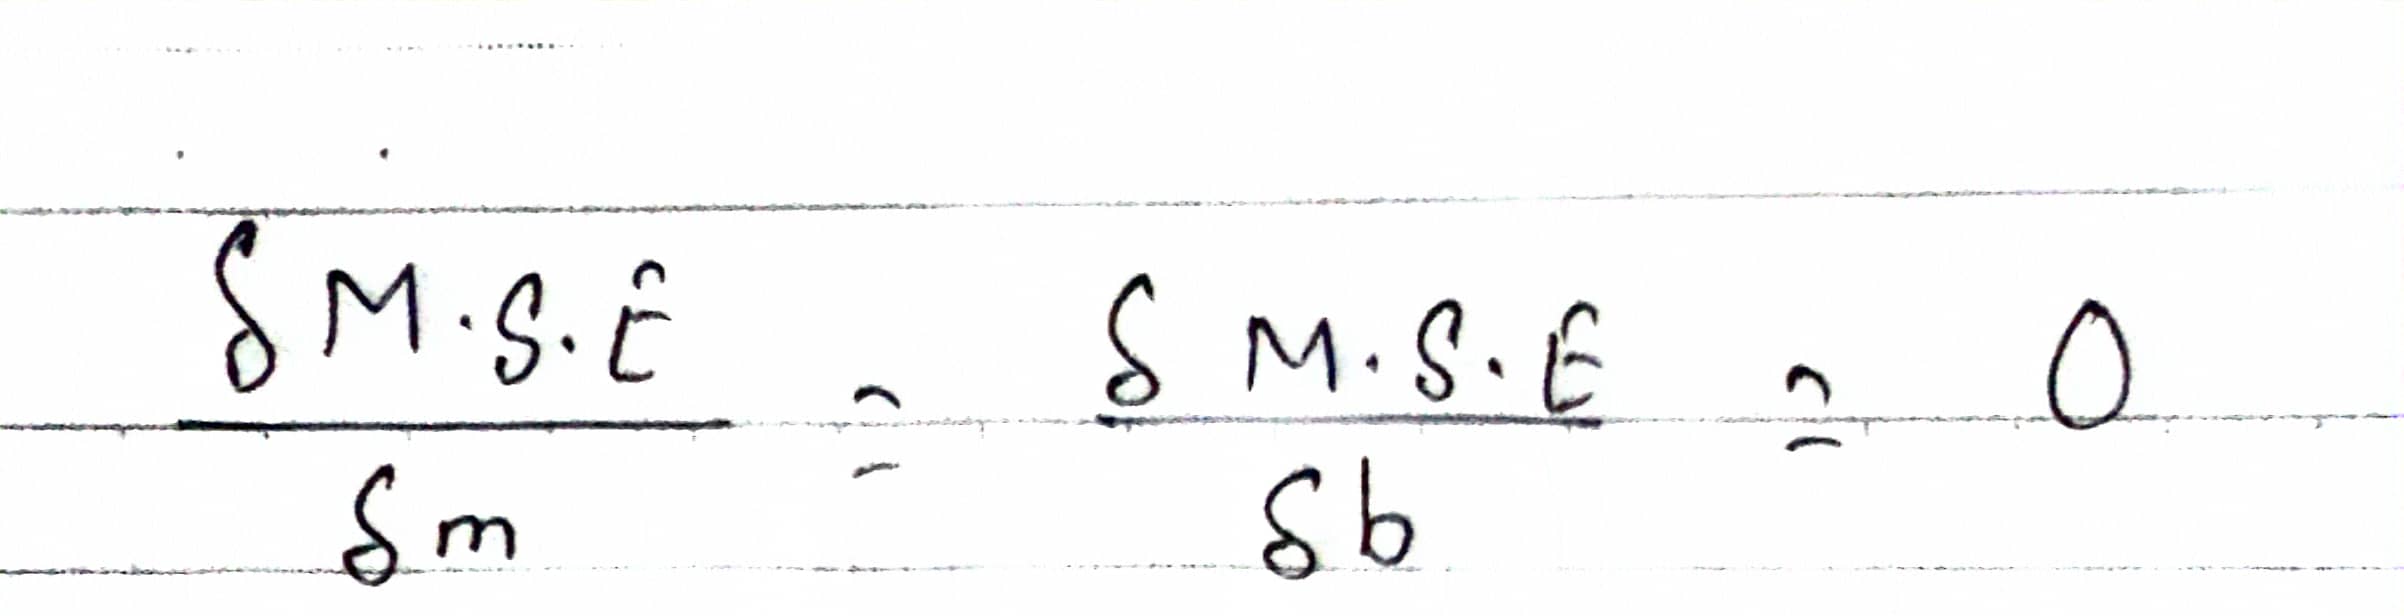 δ M.S.E / δm = δ M.S.E / δb = 0